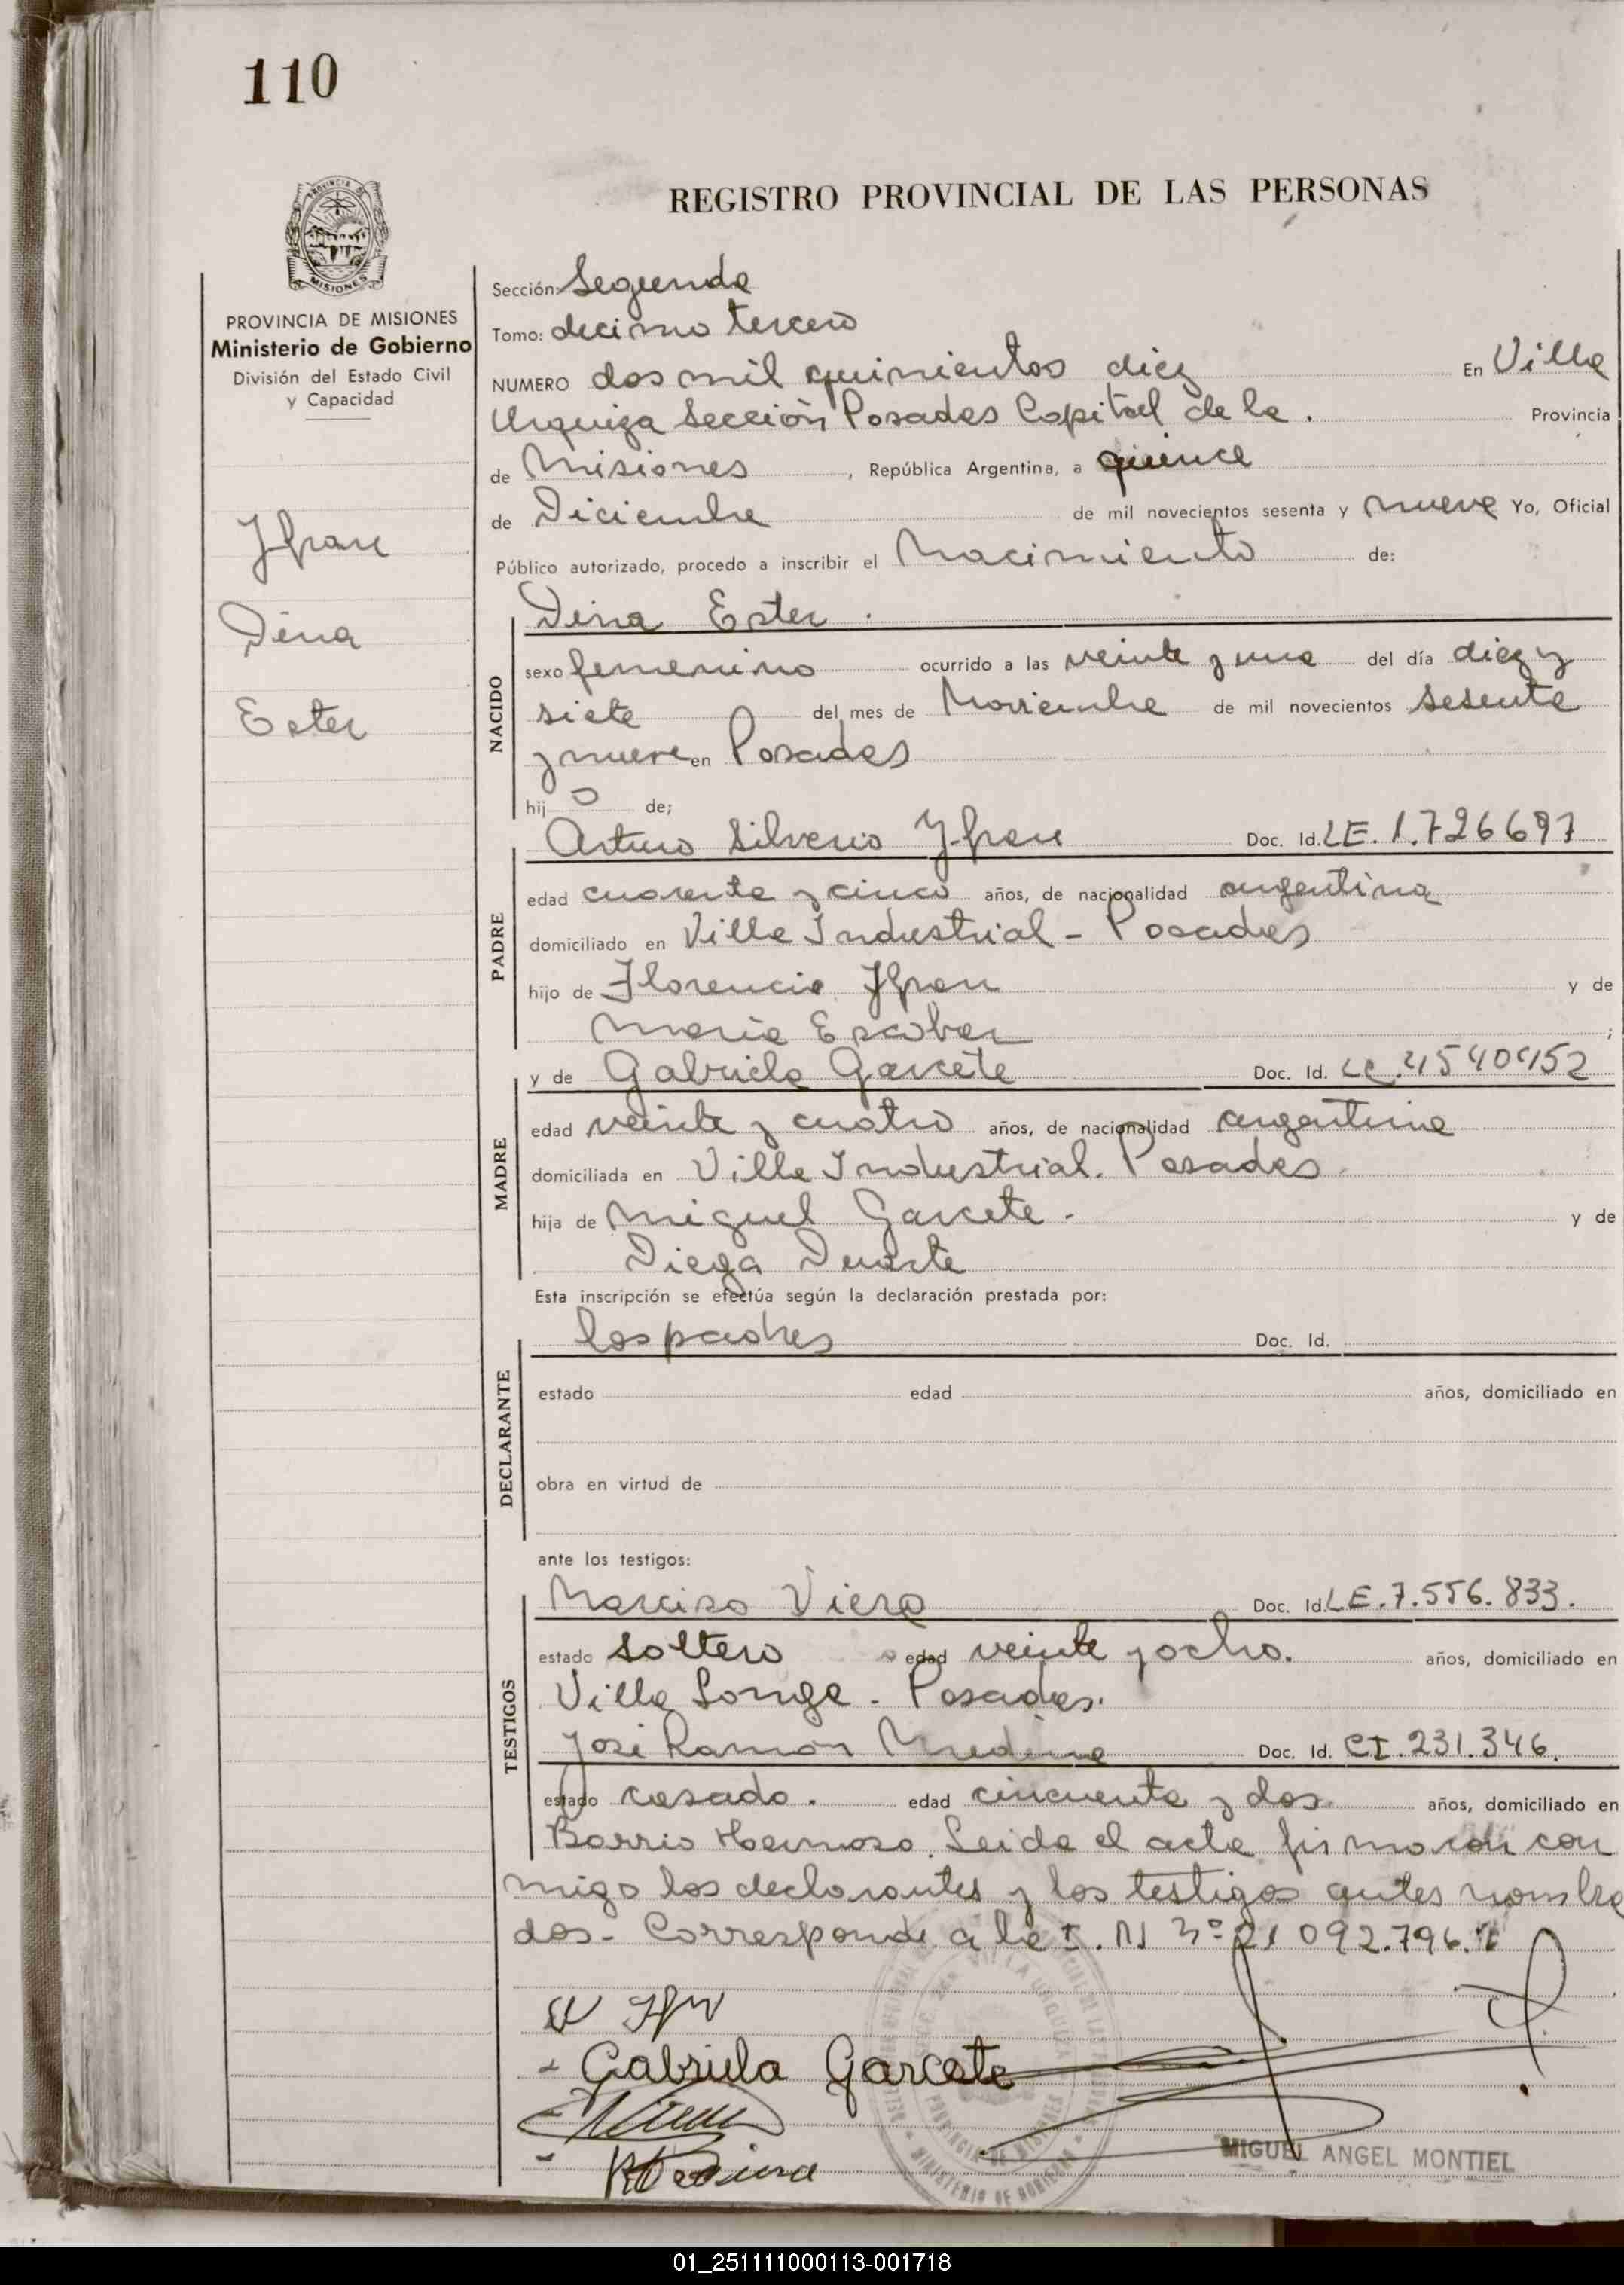 110
REGISTRO PROVINCIAL DE LAS PERSONAS
PROVINCIA DE MISIONES
Ministerio de Gobierno
División del Estado Civil
y Capacidad
Yfran
Dina
Ester
Sección: Segunda
Tomo: decimo tercero
NUMERO dos mil quinientos diez En Villa
Urquiza Sección Posadas Capital de la . Provincia
de Misiones , República Argentina, a quince
de Diciembre de mil novecientos sesenta y nueve Yo, Oficial
Público autorizado, procedo a inscribir el Nacimiento de:
NACIDO
Dina Ester .
sexo femenino ocurrido a las veinte y una del día diez y
siete del mes de Noviembre de mil novecientos sesenta
y nueve en Posadas
hij o de;
PADRE
Arturo Silverio Yfran Doc. Id. LE. 1.726697
edad cuarenta y cinco años, de nacionalidad argentina
domiciliado en Villa Industrial - Posadas
hijo de Florencio Yfran y de
Maria Escobar ;
MADRE
y de Gabriela Garcete Doc. Id. LC. 4540452
edad veinte y cuatro años, de nacionalidad argentina
domiciliada en Villa Industrial. Posadas
hija de Miguel Garcete - y de
Diega Duarte
Esta inscripción se efectúa según la declaración prestada por:
DECLARANTE
los padres Doc. Id.
estado edad años, domiciliado en
obra en virtud de
ante los testigos:
TESTIGOS
Narciso Viera Doc. Id. LE. 7.556.833.
estado soltero edad veinte y ocho. años, domiciliado en
Villa Longa - Posadas.
José Ramón Medina Doc. Id. CI. 231.346.
estado casado . edad cincuenta y dos años, domiciliado en
Barrio Hermoso. Leida el acta firmaron con
migo los declarantes y los testigos antes nombra
dos - Corresponde a la I. N nº 21 092.796.
- Gabriela Garcete
MINISTERIO DE GOBIERNO
PROVINCIA DE MISIONES
MIGUEL ANGEL MONTIEL
01_251111000113-001718